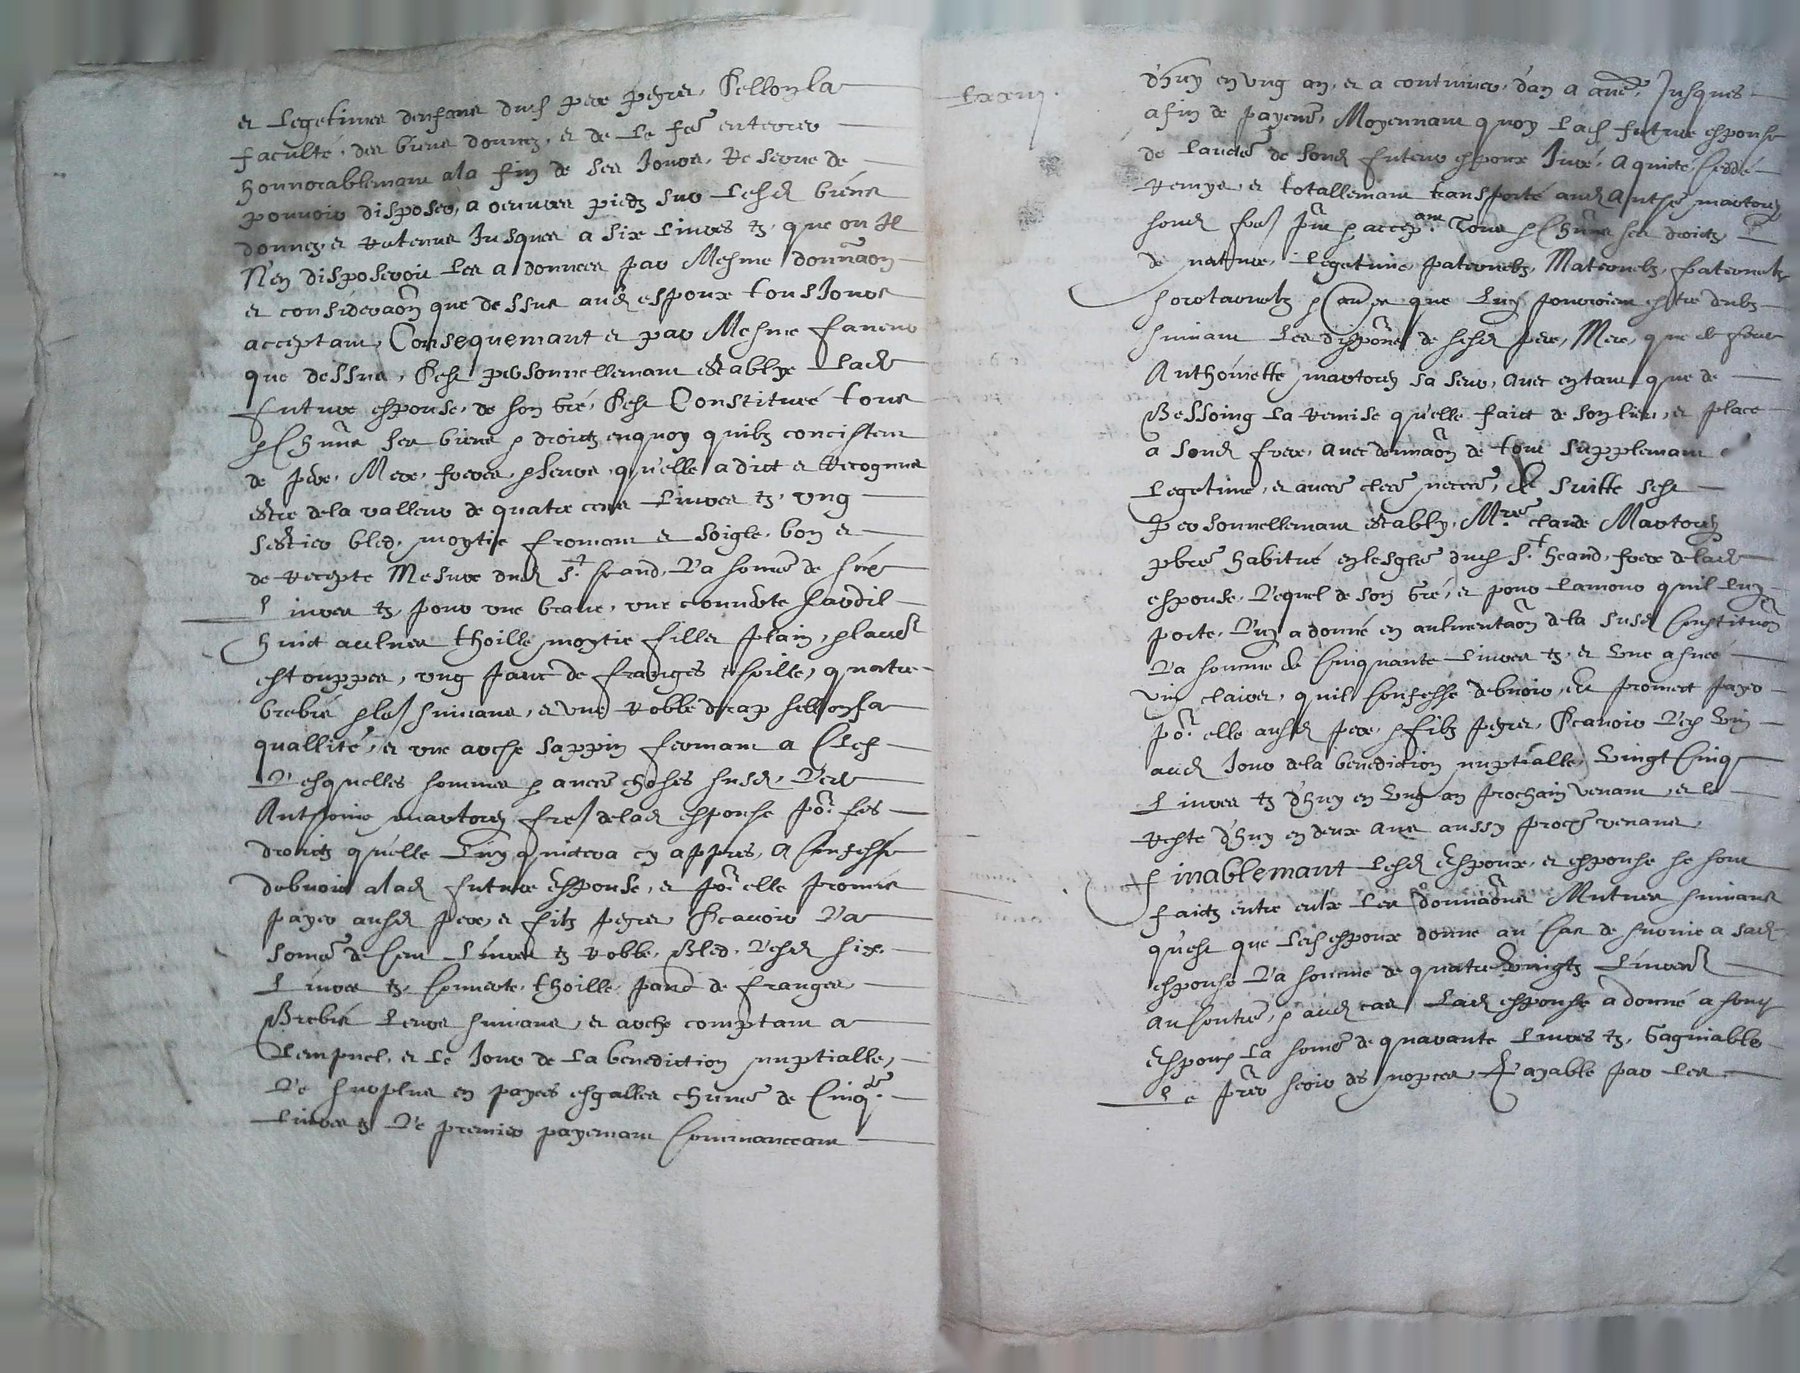 et legetimes denfans dud pere peyrer, sellon la
faculté, des biens donnez, et de le fere enterrer
honnorablemant a la fin de ses Jours, Reserve de
pouvoir disposer, a oeuvres piedz sur lesd biens
donnez et retenus Jusques a six livres tz, que ou Il
N'en disposeroit les a donnees par Mesme donnaon
et consideraon que dessus aud espoux tousJours
acceptant, Consequemant et par Mesme faveur
que dessus, s'est personnellemant establye lade
future espouse, de son gré, s'est Constitueé tous
et chūns ses biens et droictz en quoy quilz concistent
de pere, Mere, freres, et seurs, qu'elle a dict et Recognus
estre de la valleur de quatre cens livres tz, ung
sestier bled, moytie froment et soigle, bon et
de recepte Mesure dud St heand, La somē de six
Livres tz, pour une vache, une couverte sardil
huict aulnes thoille moytie fille plain, et laud
estouppes, ung pant de franges thoille, quatre
brebis et les suivans, et une Robbe drap sellon sa
quallité, et une arche sappin fermant a Clef
Desquelles sommes et aucēs choses susd, Led
Anthoine martorey freʃ de lad espouse po.r ses
droictz qu'elle Luy quictera cy appres, a Confessé
debvoir a lad future Espouse, et po.r elle promis
payer ausd pere, et filz peyrer Scavoir La
somē de Cent Livres tz Robbe, Bled, Lesd six
Livres tz, Couverte, thoille, pant de franges
Brebis Leurs suivans, et arche comptant a
Lempuct, et le Jour de la benediction nuptialle,
Le surplus en payes esgalles chūne de Cinq.te
Livres tz Le premier payemant Commanceant
Lxxiij.
d'huy en ung an, et a continuer, d'an a aultre, Jusques
a fin de payemē, Moyennant quoy lad future espouse
de laucte de sond futeur espoux Juré, a quicté cesdé
remys, et totallemant transporté aud Anthē martorey
sond freʃ pnt et accep.ant Tous et chūns ses droictz
de nature, legetime, paternelz, Maternelz, fraternelz
sorotarnelz et autres que luy pourroient estre dubz
suivant les disponē de sesd pere, Mere, que de feue
Anthoinette martorey sa seur, avec en tant que de
Bessoing la remise qu'elle faict de son lieu, et place
a sond frere, avec donnaon de tout supplemant
legetime, et autres clauses necēs, De suitte s'est
Personnellemant estably, M.re claude Martorey
pbre habitué en lesglise dud S.t heand, frere de lad
espouse, Lequel de son gré, et pour lamour quil luy
porte, Luy a donné en aulmentaon de la susd Constituon
La somme de Cinquante livres tz, et une asnee
vin clairet, quil Confesse debvoir, et promect payer
po.r elle ausd pere, et filz peyrer, Scavoir Led vin
aud Jour de la benediction nuptialle, vingt Cinq
Livres tz d'huy en ung an prochain venant, et le
reste d'huy en deux ans aussy proch venans
Finablemant lesd Espoux, et espouse se sont
faictz entre eulx les donnaons Mutues suivans
qu'est que led espoux donne au Cas de survie a sad
espouse La somme de quatre vingtz Livres
au Contrē, et aud cas lad espouse a donné a sond
Espoux la somē de quarante livres tz, Gagniable
Le pr.er soir des nopces, Payable par les